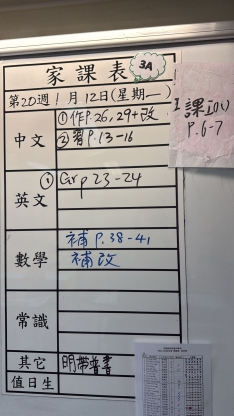 家課表
3A
第20週1月12日(星期一)
中文
①作P.26,29+改
②習P.13-16
英文
Gr p 23-24
數學
補 P.38-41
補改
常識
其它
明帶普書
值日生
P.6-7